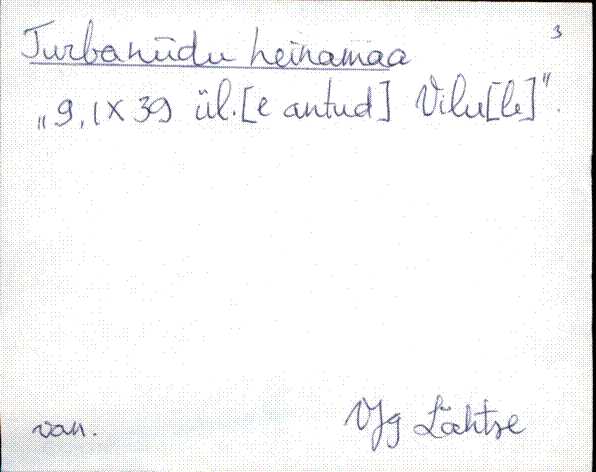 3
Turbaniidu heinamaa
„9.IX 39 ül.[e antud] Vilu[le]".
van. VJg Lähtse